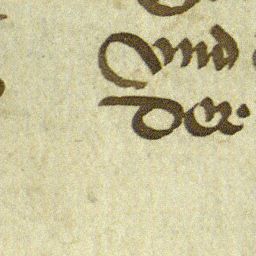 vnd
der